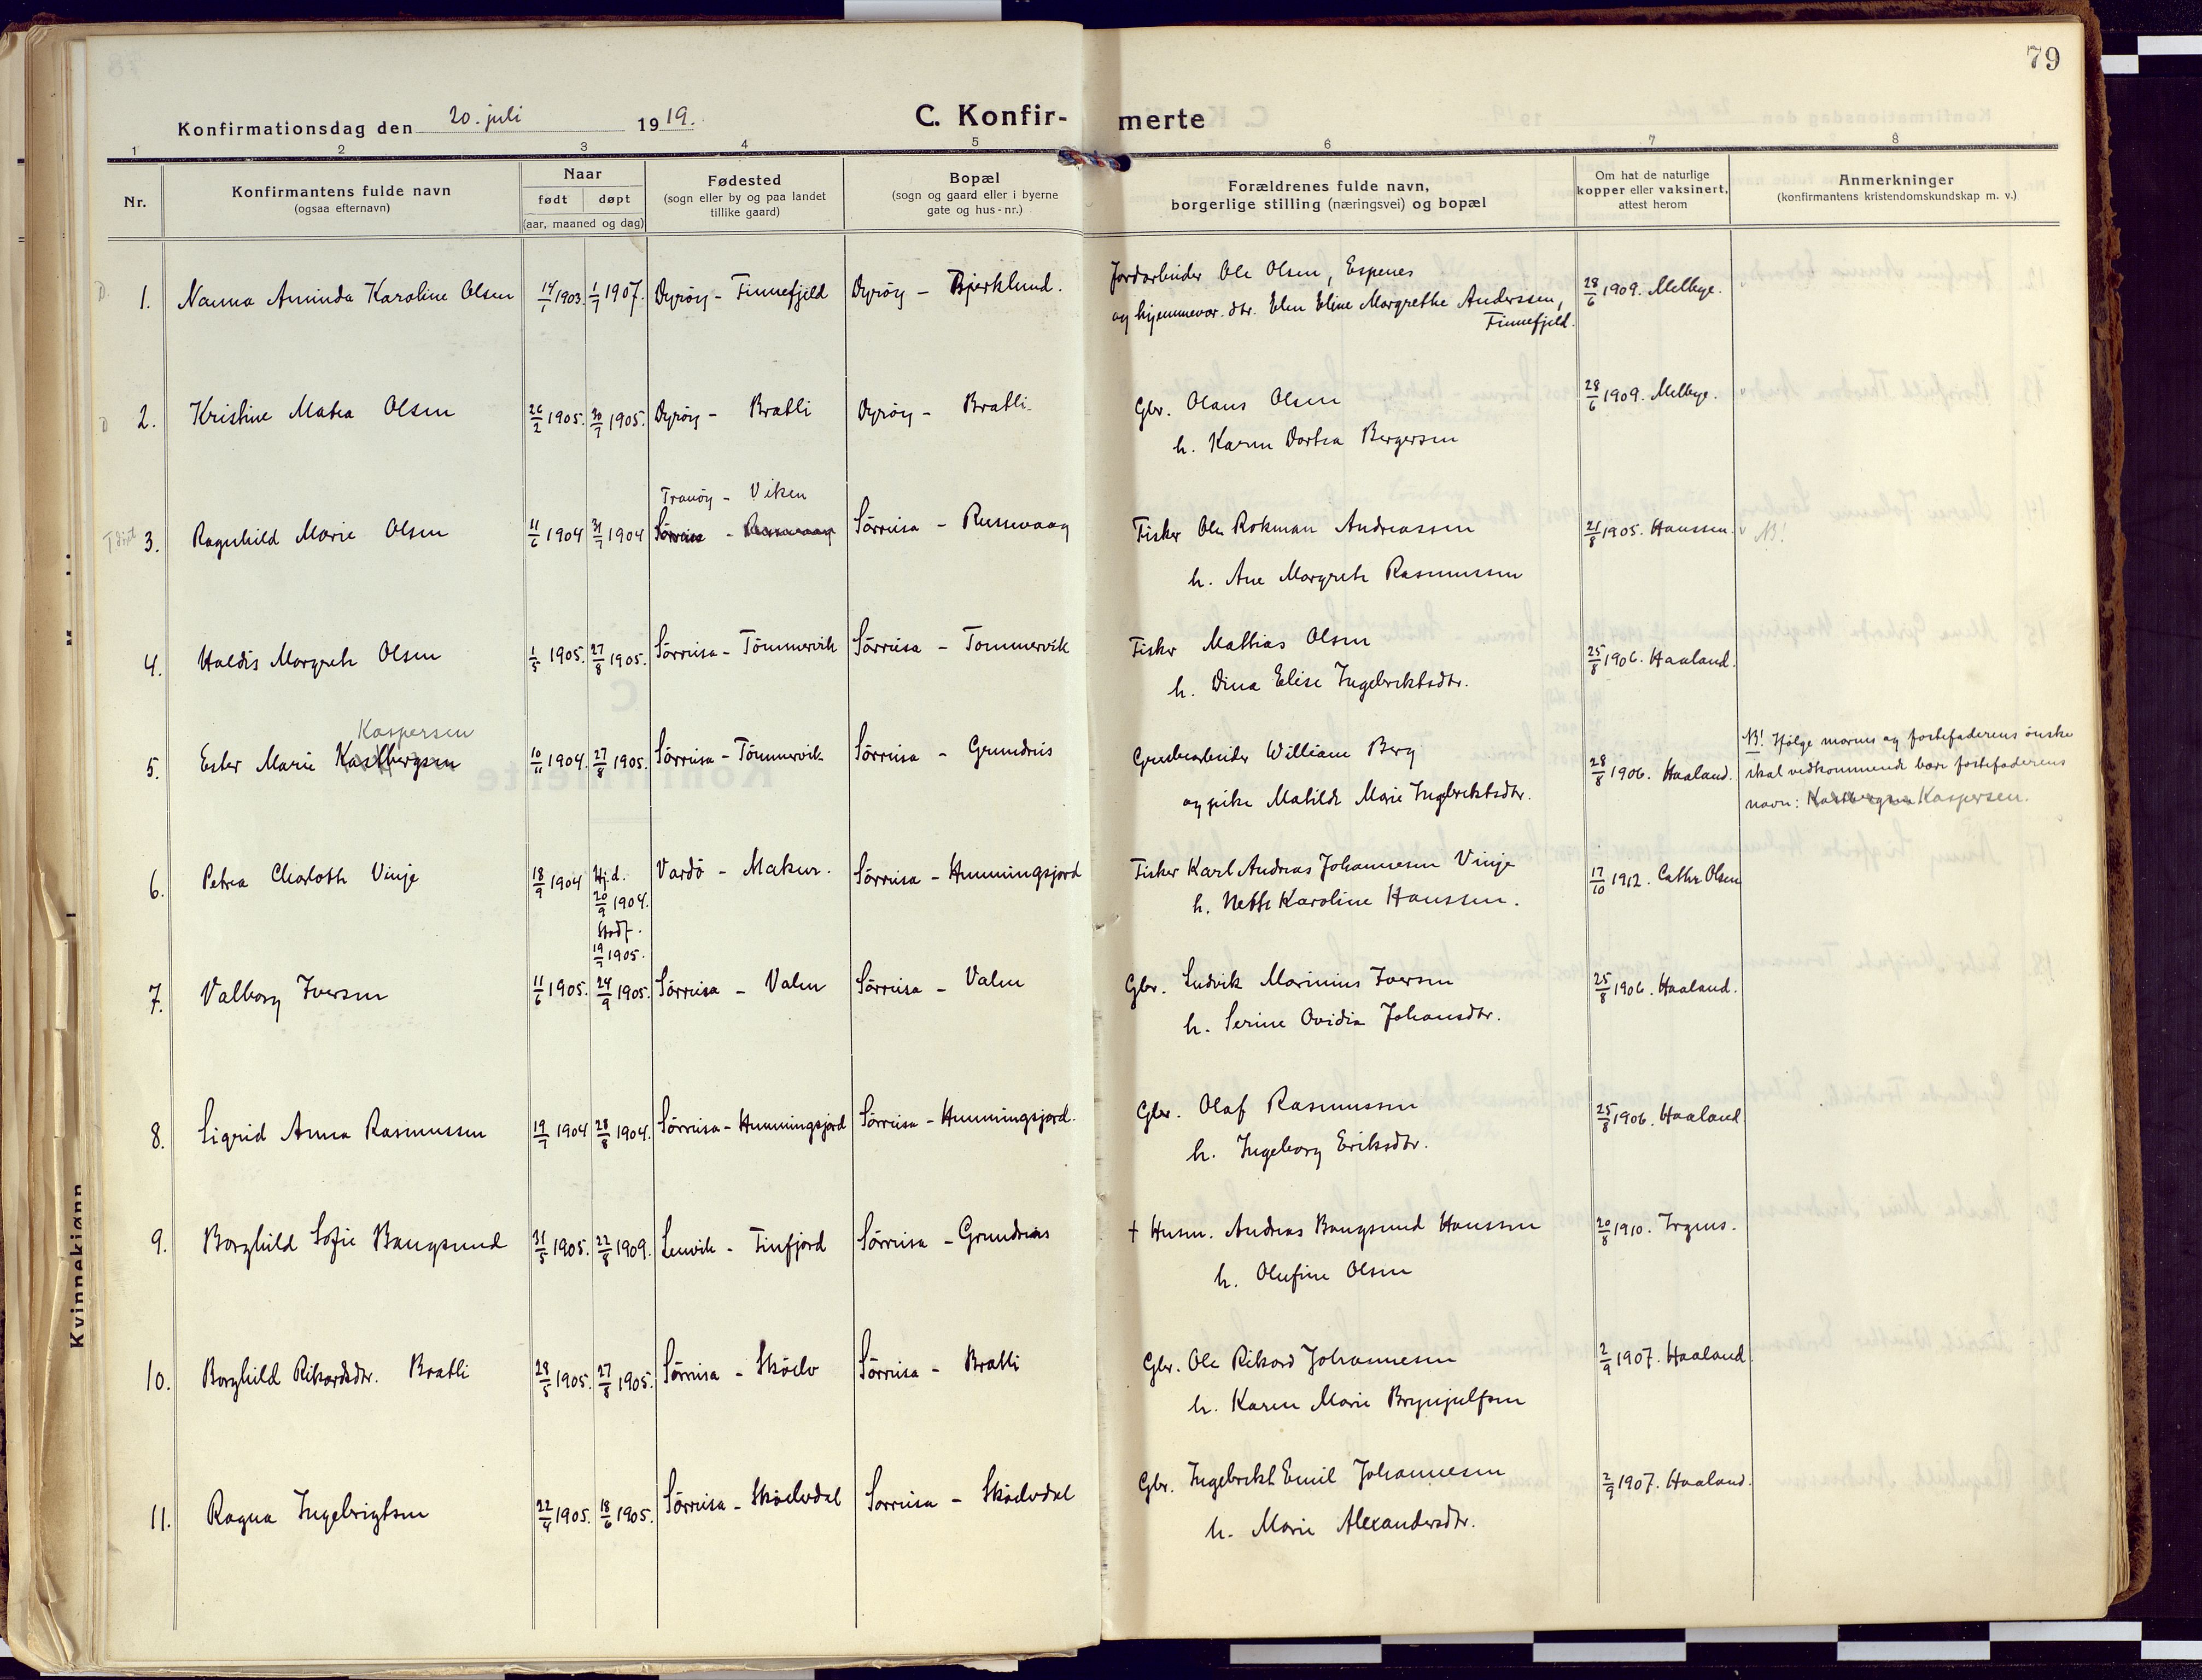 79
Konfirmationsdag den 20. juli 1919.
C. Konfir-
merte
1 2 3 4 5 6 7 8
Nr.
Konfirmantens fulde navn
(ogsaa efternavn)
Naar
født døpt
(aar, maaned og dag)
Fødested
(sogn eller by og paa landet
tillike gaard)
Bopæl
(sogn og gaard eller i byerne
gate og hus-nr.)
Forældrenes fulde navn,
borgerlige stilling (næringsvei) og bopæl
Om hat de naturlige
kopper eller vaksinert,
attest herom
Anmerkninger
(konfirmantens kristendomskundskap m. v.)
D. 1. Nanna Aminda Karoline Olsen 14/1 1903. 1/7 1907. Dyröy - Finnefjeld Dyröy - Bjerklund. Jordarbeider Ole Olsen, Espenes 28/6 1909. Melbye.
og hjemmevær. dtr. Elen Eline Margrethe Anderssen,
Finnefjeld.
D 2. Kristine Matea Olsen 26/2 1905. 30/7 1905. Dyröy - Bratli Dyröy - Bratli Gbr. Olaus Olsen 28/6 1909. Melbye.
h. Karen Dortea Bergersen
Tranöy - Viken
3. Ragnhild Marie Olsen 11/6 1904 31/7 1904 Sörreisa - Sörreisa - Russevaag Fisker Ole Rokman Andreassen 21/8 1905. Hanssen. N!
h. Ane Margreth Rasmussen
4. Haldis Margreth Olsen 1/5 1905. 27/8 1905. Sörreisa - Tömmervik Sörreisa - Tommervik Fisker Mathias Olsen 25/8 1906. Haaland.
h. Dina Elise Ingebriktsdtr.
Kaspersen
5. Ester Marie Kastbergsen 10/11 1904. 27/8 1905. Sörreisa - Tömmervik Sörreisa - Grundreis Grubearbeider William Berg 28/8 1906. Haaland.
og pike Matilde Marie Ingebriktsdtr.
N! Ifølge morens og fosterfaderens önske
skal vedkommende bære fosterfaderens
navn: Kastbergsen Kaspersen.
6. Petra Charlotte Vinje 18/9 1904 Hj.d. 20/9 1904. Stadf. 19/7 1905. Vardö - Makur. Sörreisa - Hemmingsjord Fisker Karl Andreas Johannesen Vinje 17/10 1912. Cathr. Olsen
h. Nette Karoline Hanssen.
7. Valborg Iversen 11/6 1905. 24/9 1905. Sörreisa - Valen Sörreisa - Valen Gbr. Ludvik Marinius Iversen 25/8 1906. Haaland.
h. Serine Ovidia Johansdtr.
8. Sigrid Anna Rasmussen 19/7 1904 28/8 1904. Sörreisa - Hemmingsjord Sörreisa - Hemmingsjord. Gbr. Olaf Rasmussen 25/8 1906. Haaland
h. Ingeborg Eriksdtr.
9. Borghild Sofie Bangsund 31/5 1905. 22/8 1909. Lenvik - Finfjord Sörreisa - Grundreis † Husm. Andreas Bangsund Hanssen 20/8 1910. Irgens.
h. Olufine Olsen
10. Borghild Rikardsdtr. Bratli 28/5 1905. 27/8 1905. Sörreisa - Sköelv Sörreisa - Bratli Gbr. Ole Rikard Johannesen 2/9 1907. Haaland
h. Karen Marie Brynjulfsen
11. Ragna Ingebrigtsen 22/4 1905. 18/6 1905. Sörreisa - Sköelvdal Sörreisa - Sköelvdal Gbr. Ingebrikt Emil Johannesen 2/9 1907. Haaland.
h. Marie Alexandersdtr.
Kvinnekjønn